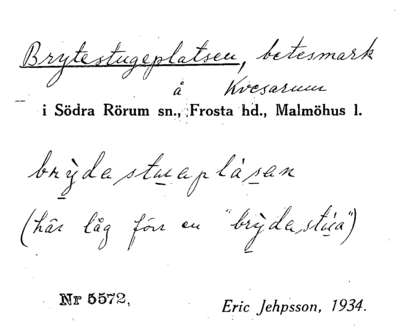 Brytestugeplatsen, betesmark
å Kvesarum
i Södra Rörum sn., Frosta hd., Malmöhus l.
brỳdastuaplásan
(här låg förr en "brỳdastúa")
Nr 5572,
Eric Jehpsson, 1934.